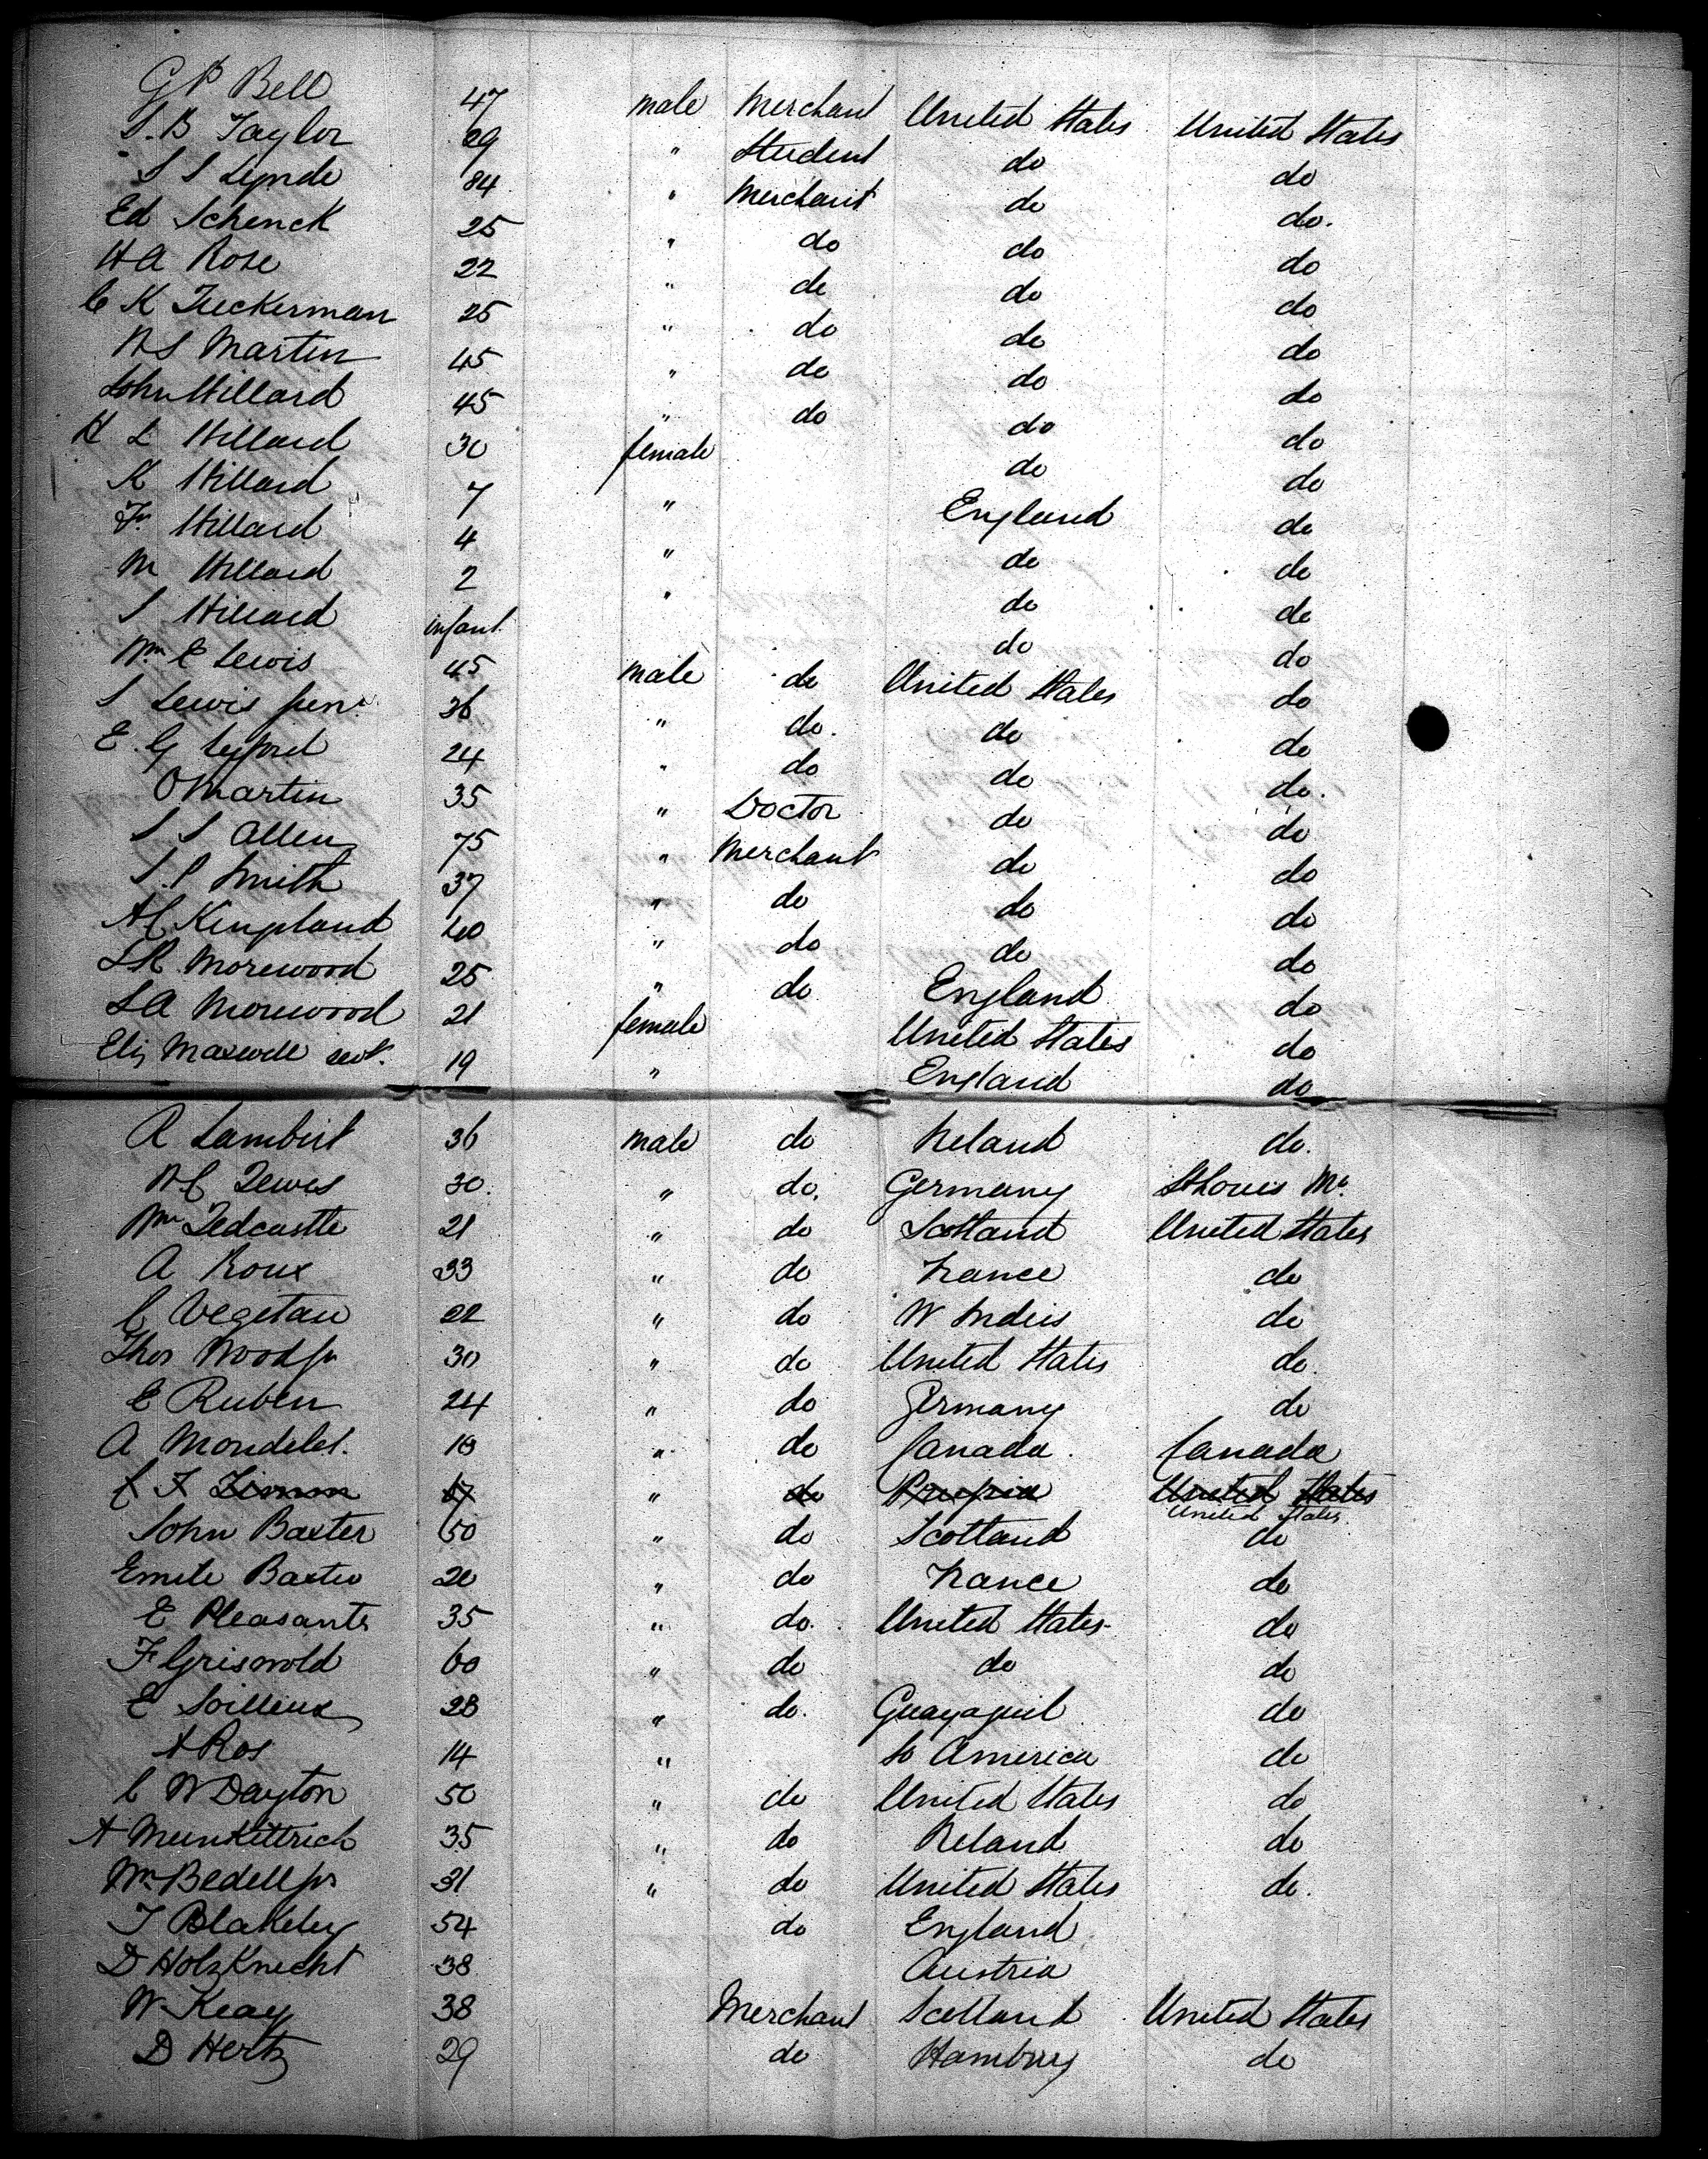 G P Bell 47 male Merchant United States United States
S. B Taylor 29 " Student do do
S S Lynde 34 " Merchant do do.
Ed Schenck 25 " do do do
H A Rose 22 " do do do
C K Tuckerman 25 " do do do
W S Martin 45 " do do do
John Hillard 45 " do do do
H L Hillard 30 female do do
K Hillard 7 " England do
Fr. Hillard 4 " do do
M Hillard 2 " do do
S Hillard infant do do
Wm E Lewis 45 male do United States do
S Lewis junr. 36 " do. do do
E. G 24 " do do do.
O Martin 35 " Doctor do do
S S Allen 75 " Merchant do do
S. P Smith 37 " do do do
A C Kingsland 40 " do do do
Morewood 25 " do England do
S A Morewood 21 female United States do
Eliz Maxwell sevt. 19 " England do
A Lambert 36 male do Ireland do.
W C 30. " do. Germany St Louis Mo.
Wm Tedcastle 21 " do Scotland United States
A Roux 33 " do France do
C Vegetau 22 " do W Indies do
Thos Wood jr 30 " do United States do.
E Ruben 24 " do Germany do
A Mondelet. 18 " do Canada. Canada
" do United States
United States
John Baxter 50 " do Scotland do
Emile Baxter 20 " do France do
E Pleasants 35 " do. United States do
F Griswold 60 " do do do
E Soilleux 28 " do. Guayaquil do
A Ros 14 " So America do
C W Dayton 50 " do United States do
A Munkittrick 35 " do Ireland do
Wm Bedell jr 31 " do United States do.
T Blakeley 54 do England
D Holzknecht 38 Austria
W Keay 38 Merchant Scotland United States
D Hertz 29 do Hamburg do